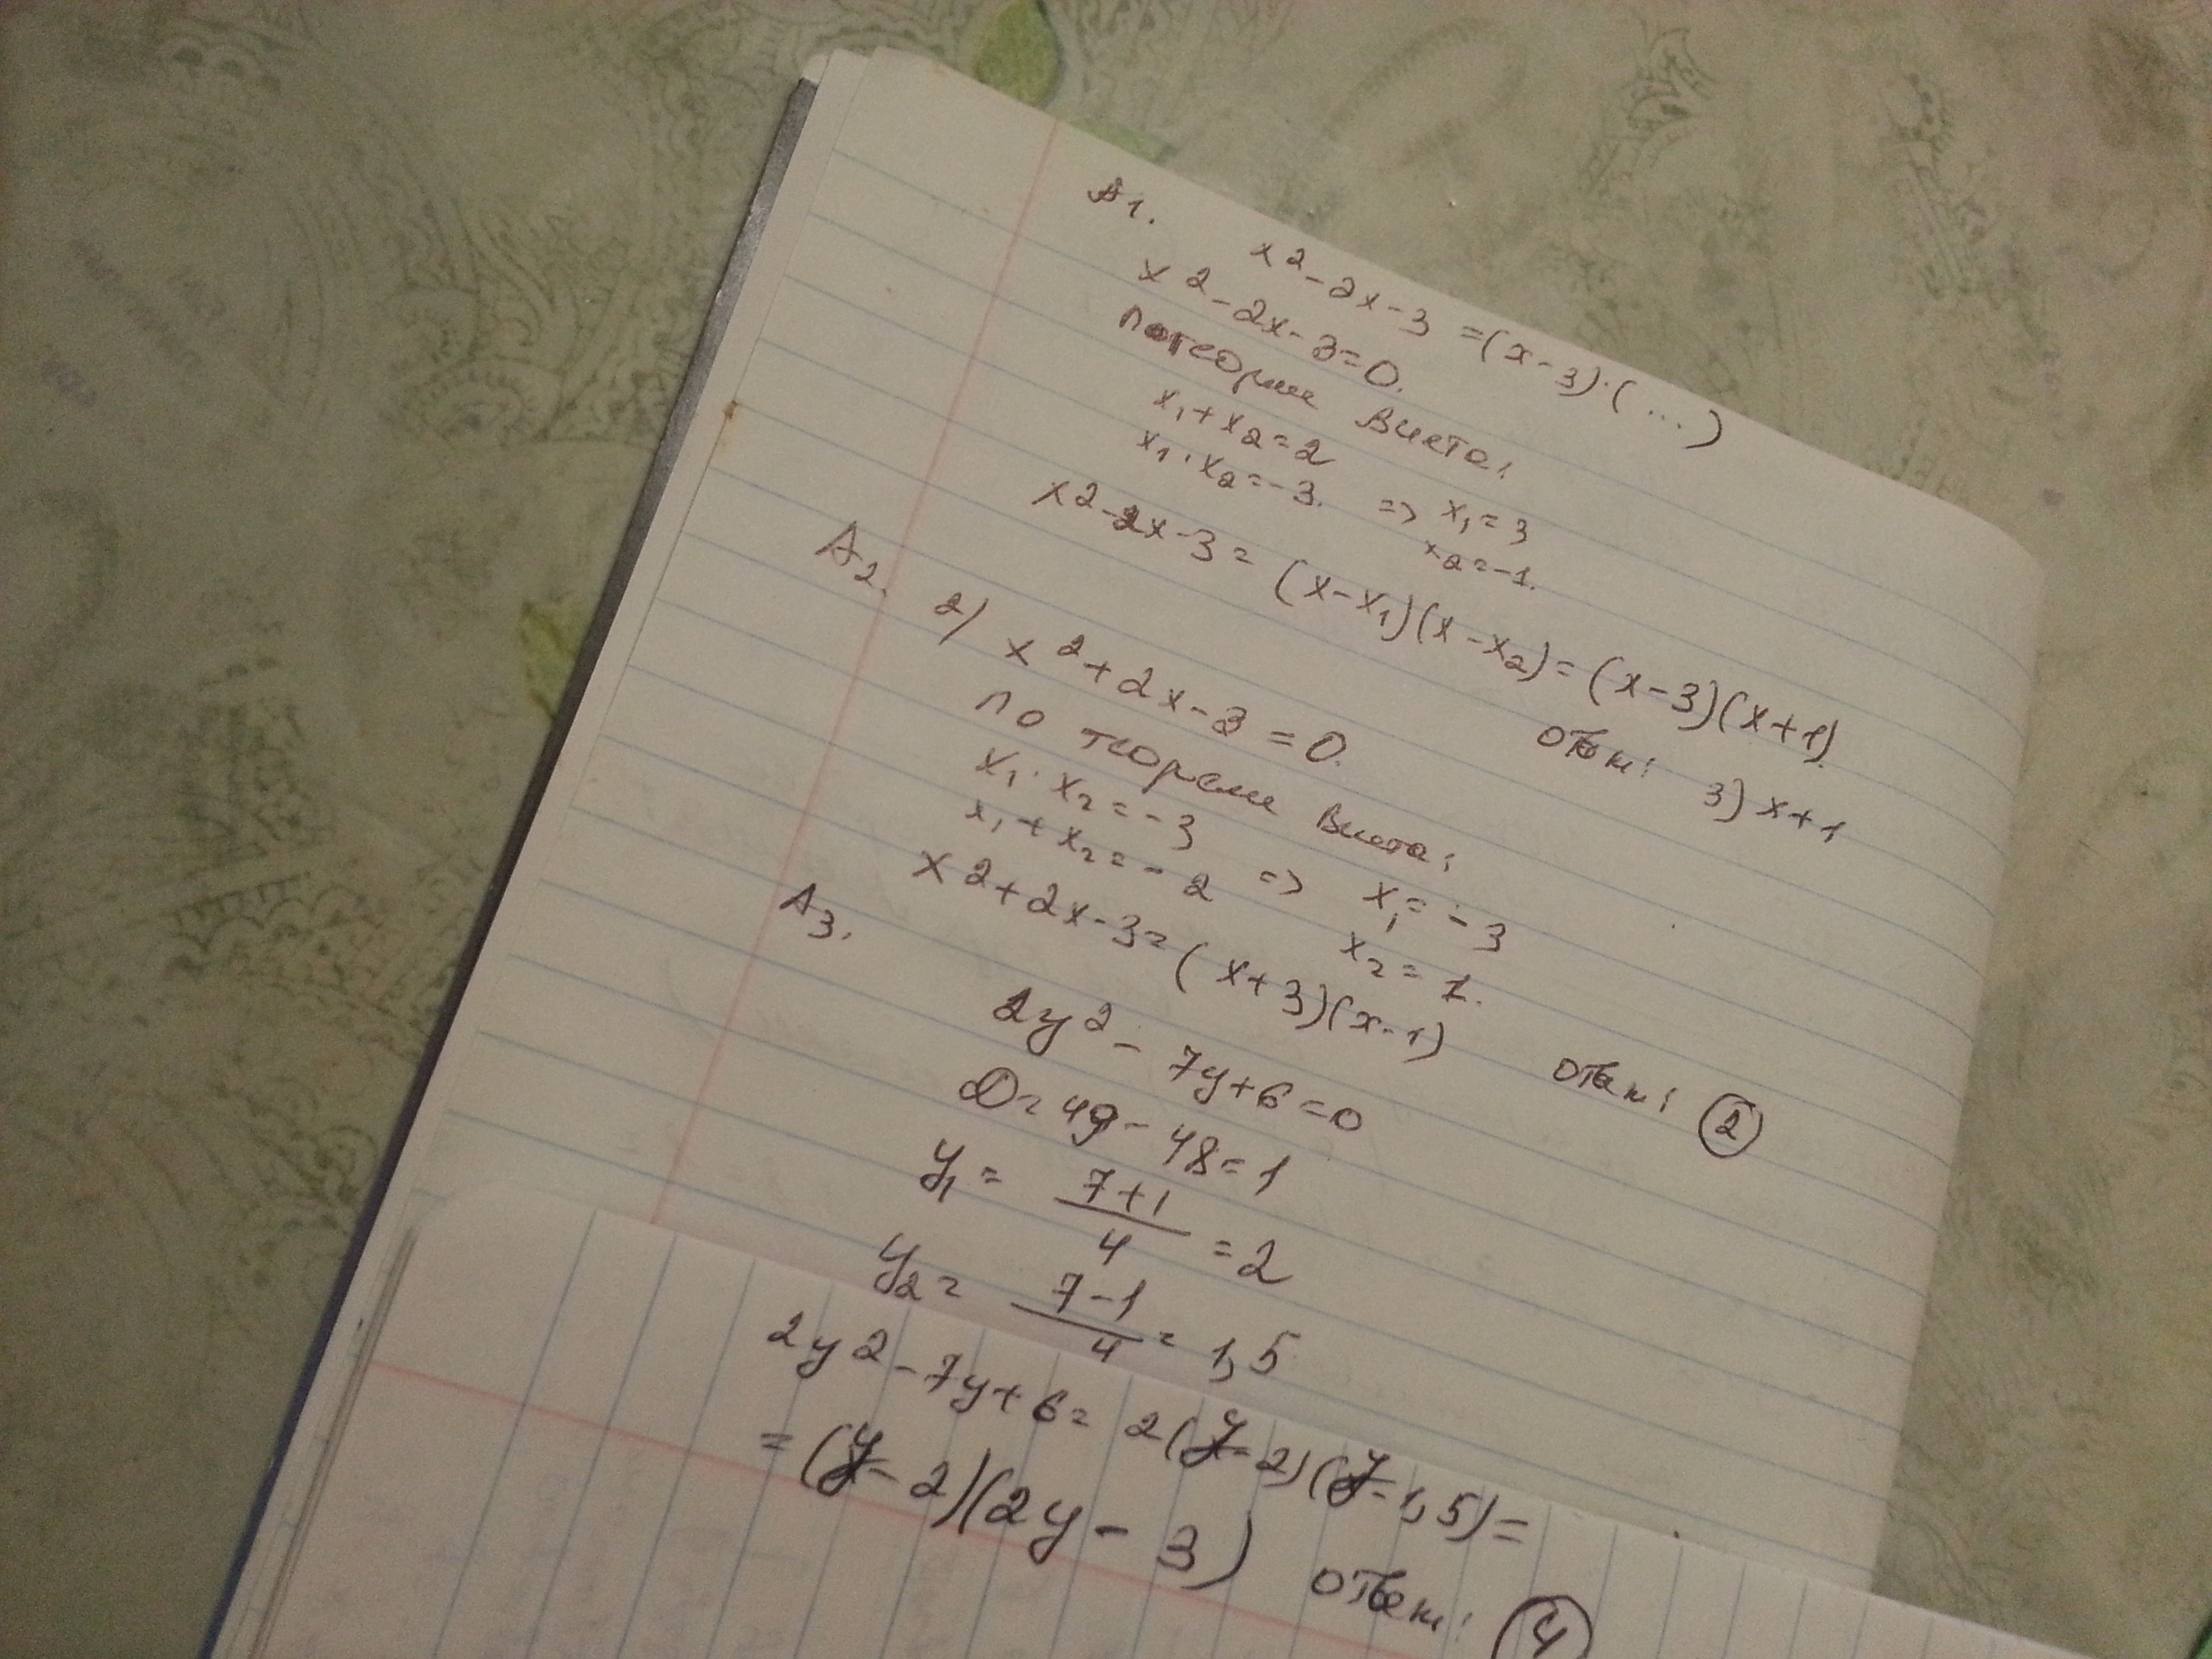 A1.
x² - 2x - 3 = (x - 3)·(...)
x² - 2x - 3 = 0.
по теореме Виета:
x₁ + x₂ = 2
x₁ · x₂ = -3. => x₁ = 3
x₂ = -1.
x² - 2x - 3 = (x - x₁)(x - x₂) = (x - 3)(x + 1)
ответ: 3) x + 1
A2. 2) x² + 2x - 3 = 0.
по теореме Виета:
x₁ · x₂ = -3
x₁ + x₂ = -2 => x₁ = -3
x₂ = 1.
x² + 2x - 3 = (x + 3)(x - 1)
ответ: 2
A3.
2y² - 7y + 6 = 0
D = 49 - 48 = 1
y₁ = (7 + 1)/4 = 2
y₂ = (7 - 1)/4 = 1,5
2y² - 7y + 6 = 2(y - 2)(y - 1,5) =
= (y - 2)(2y - 3)
ответ: 4